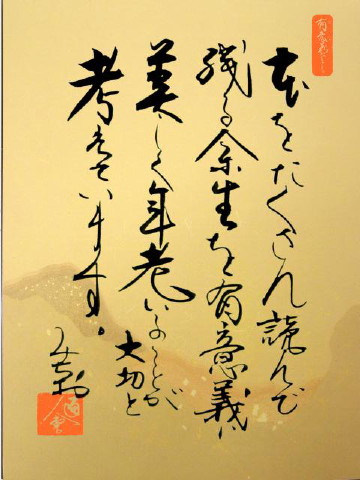 本をたくさん読んで
残る余生を有意義に
美しく年老いることが
大切と
考えています。